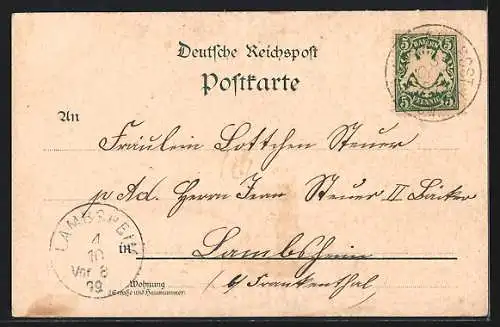 Deutsche Reichspost
Postkarte
BAYERN
5 5
5 PFENNIG 5
An
Fräulein Lottchen Steuer
p Ad. Herrn Jean Steuer II Bäcker
in Lambsheim
b/ Frankenthal
LAMBSHEIM
4
10
Vor. 8
99
Wohnung
(Straße und Hausnummer)